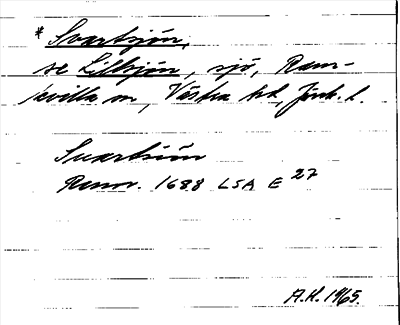 * Svartsjön,
se Lillsjön, sjö, Ram-
kvilla sn, Västra hd, Jönk. l.
Suartsiön
Renov. 1688 LSA E 27
A.H. 1965.